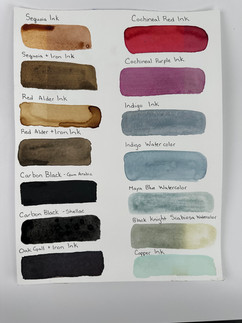 Sequoia Ink
Sequoia + Iron Ink
Red Alder Ink
Red Alder + Iron Ink
Carbon Black - Gum Arabic
Carbon Black - Shellac
Oak Gall + Iron Ink
Cochineal Red Ink
Cochineal Purple Ink
Indigo Ink
Indigo Watercolor
Maya Blue Watercolor
Black Knight Scabiosa Watercolor
Copper Ink